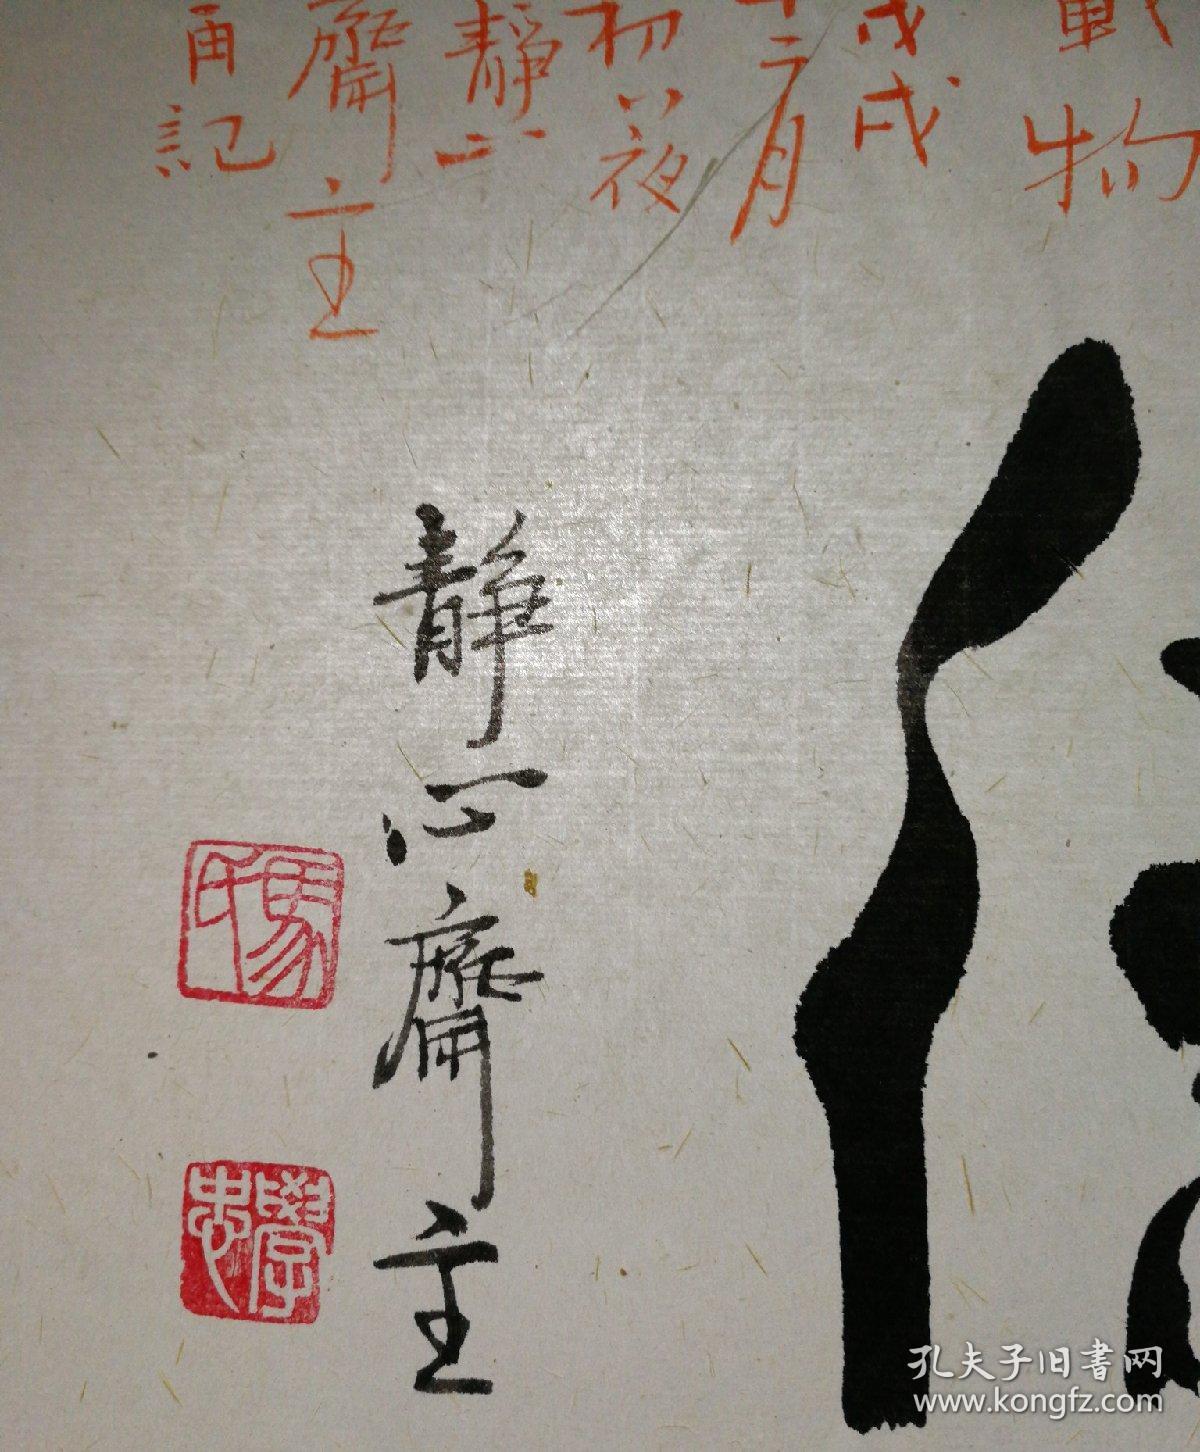 載物
戊戌
十二月
初八夜
靜心
齋主
再記
靜心齋主
學忠
孔夫子旧書网
www.kongfz.com